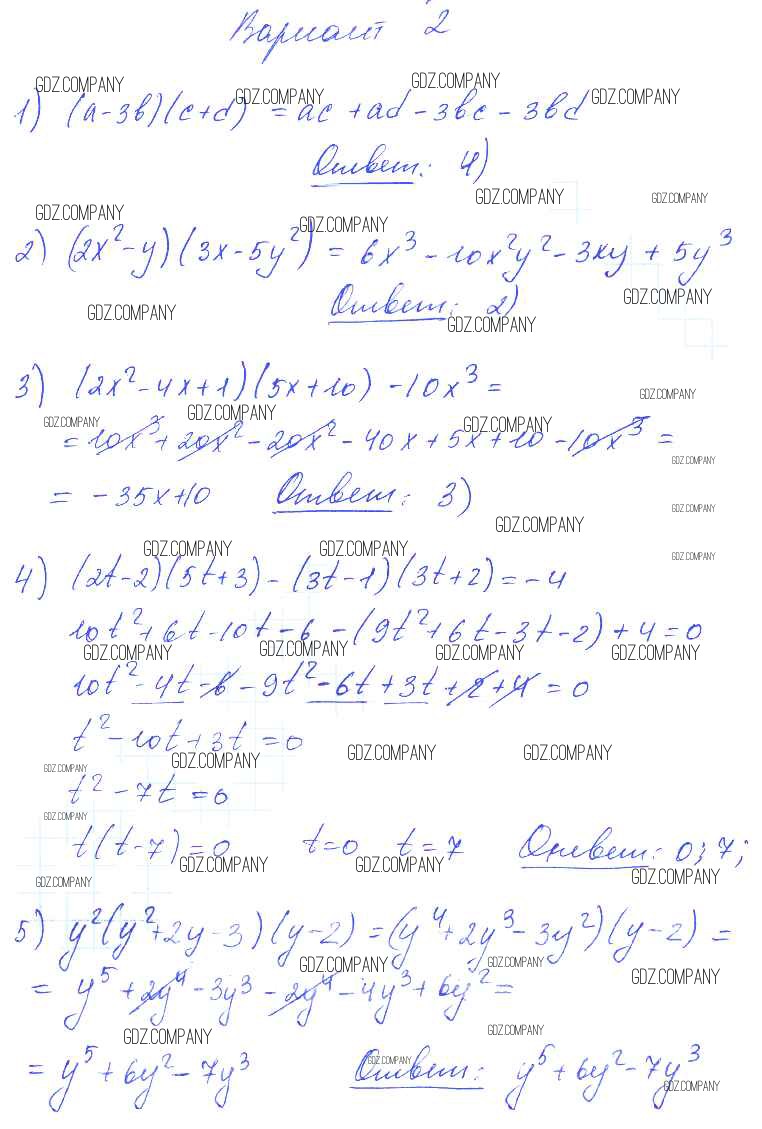 Вариант 2
GDZ.COMPANY GDZ.COMPANY GDZ.COMPANY GDZ.COMPANY
1) (a-3b)(c+d) = ac + ad - 3bc - 3bd
Ответ: 4)
GDZ.COMPANY GDZ.COMPANY GDZ.COMPANY GDZ.COMPANY
2) (2x²-y)(3x-5y²) = 6x³ - 10x²y² - 3xy + 5y³
Ответ: 2)
GDZ.COMPANY GDZ.COMPANY GDZ.COMPANY
3) (2x²-4x+1)(5x+10) - 10x³ =
GDZ.COMPANY GDZ.COMPANY GDZ.COMPANY GDZ.COMPANY
= 10x³ + 20x² - 20x² - 40x + 5x + 10 - 10x³ =
GDZ.COMPANY
= -35x+10 Ответ: 3)
GDZ.COMPANY GDZ.COMPANY
GDZ.COMPANY GDZ.COMPANY GDZ.COMPANY
4) (2t-2)(5t+3) - (3t-1)(3t+2) = -4
10t² + 6t - 10t - 6 - (9t² + 6t - 3t - 2) + 4 = 0
GDZ.COMPANY GDZ.COMPANY GDZ.COMPANY GDZ.COMPANY
10t² - 4t - 6 - 9t² - 6t + 3t + 2 + 4 = 0
t² - 10t + 3t = 0
GDZ.COMPANY GDZ.COMPANY GDZ.COMPANY GDZ.COMPANY
t² - 7t = 0
GDZ.COMPANY
t(t-7) = 0 t=0 t=7 Ответ: 0; 7;
GDZ.COMPANY GDZ.COMPANY GDZ.COMPANY GDZ.COMPANY
5) y²(y²+2y-3)(y-2) = (y⁴+2y³-3y²)(y-2) =
GDZ.COMPANY GDZ.COMPANY GDZ.COMPANY
= y⁵ + 2y⁴ - 3y³ - 2y⁴ - 4y³ + 6y² =
GDZ.COMPANY GDZ.COMPANY
= y⁵ + 6y² - 7y³ Ответ: y⁵ + 6y² - 7y³
GDZ.COMPANY GDZ.COMPANY